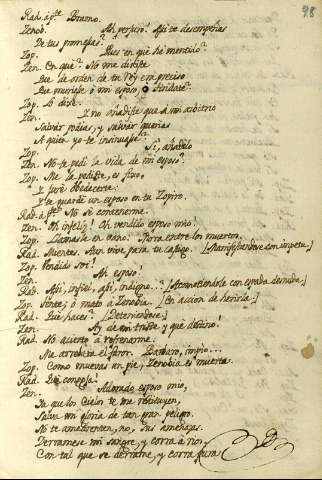 98
Rad. ap.te Bramo.
Zenob. Ah perjuro! Asi te desempeñas
De tus promesas?
Zop. Pues en qué he mentido?
Zen. En qué? No me dixiste
Que de orden de tu Rey era preciso
Que muriese ó mi esposo, ó
Zop. Lo dixe.
Zen. Y no añadiste que á mi arbitrio
Salvar podias, y salvar querias
A quien yo te insinuase?
Zop. Sí, añadílo
Zen. No te pedí la vida de mi esposo?
Zop. Me la pediste, es fixo,
Y juré obedecerte:
Y te guardé un esposo en tu Zopiro.
Rad. ap.te No sé contenerme.
Zen. Oh infeliz! Oh vendido esposo mio!
Zop. Llámasle en vano: Mora entre los muertos.
Rad. Mientes. Aun vive para tu castigo. [Manifestandose con impetu.]
Zop. Vendido soi!
Zen. Ah esposo!
Rad. Asi, infiel, asi, indigno..? [Acometiendole con espada desnuda.]
Zop. Tente; ó mato á Zenobia. [En accion de herirla.]
Rad. Qué haces? [Deteniendose.]
Zen. Ay de mi triste y qué destino!
Rad. No acierto á refrenarme:
Me arrebata el furor. Barbaro, impio...
Zop. Como muevas un pie, Zenobia es muerta.
Rad. Qué
Zen. Adorado esposo mio,
Ya que los Cielos te me restituyen,
Salva mi gloria de tan gran peligro.
No te amedrenten, no, sus amenazas.
Derramese mi sangre, y corra á rios,
Con tal que se derrame, y corra pura